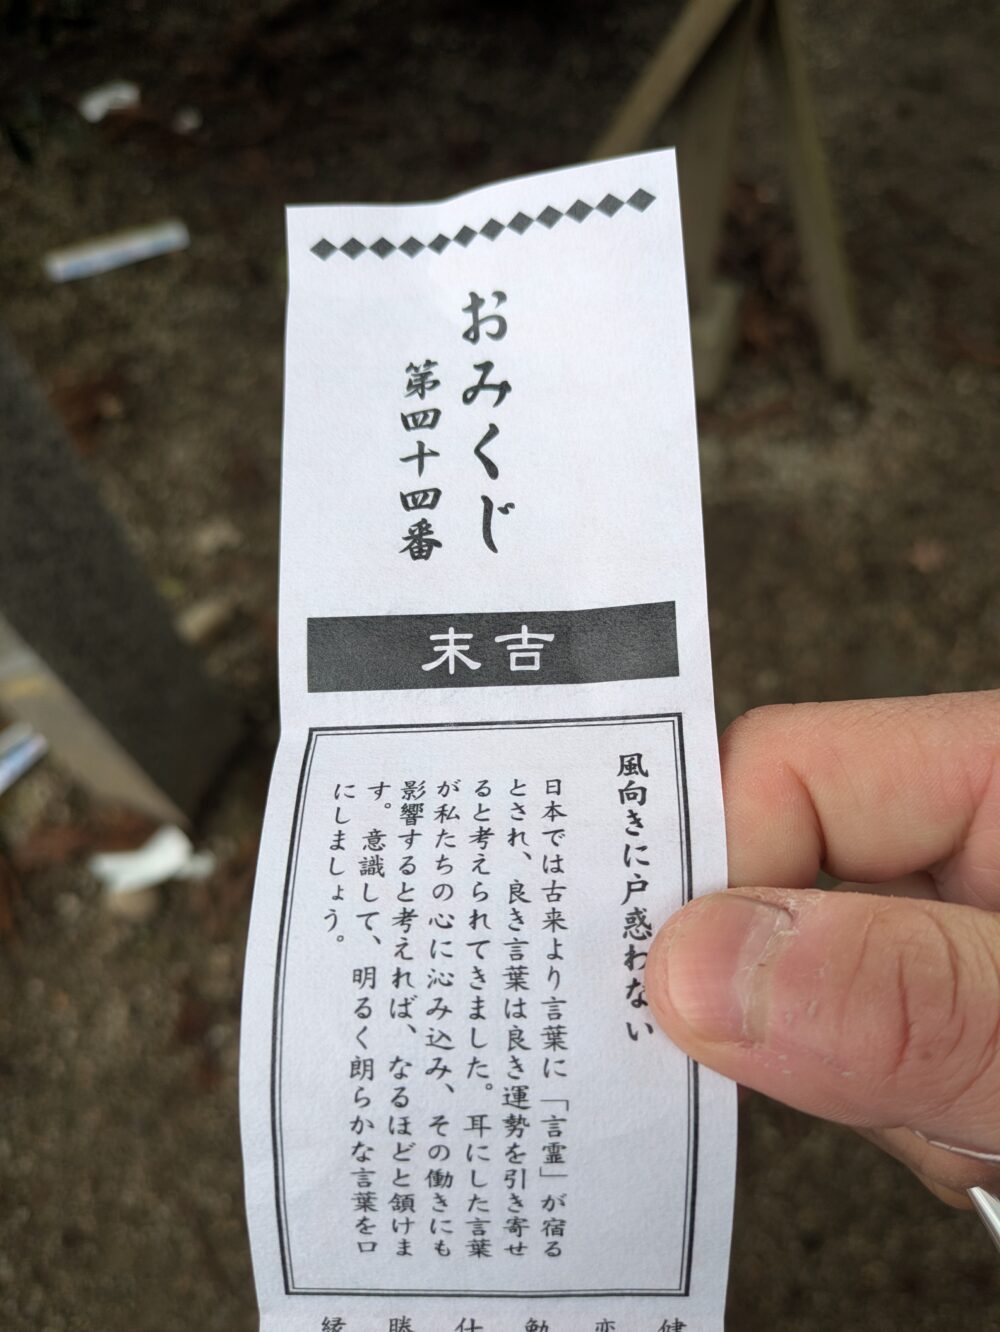 おみくじ
第四十四番
末吉
風向きに戸惑わない
日本では古来より言葉に「言霊」が宿る
とされ、良き言葉は良き運勢を引き寄せ
ると考えられてきました。耳にした言葉
が私たちの心に沁み込み、その働きにも
影響すると考えれば、なるほどと頷けま
す。意識して、明るく朗らかな言葉を口
にしましょう。